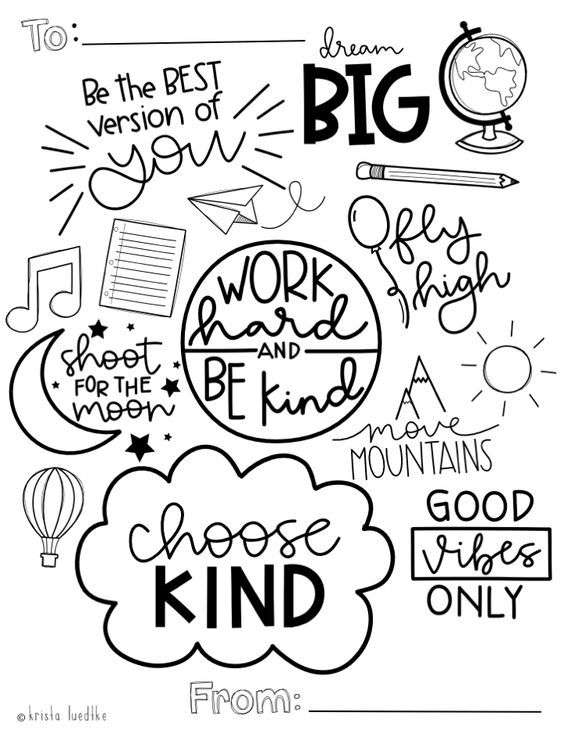 To:
dream
BIG
Be the BEST
version of
you
fly
high
WORK
hard
AND
BE kind
shoot
FOR THE
moon
move
MOUNTAINS
GOOD
vibes
ONLY
choose
KIND
From:
©krista luedtke